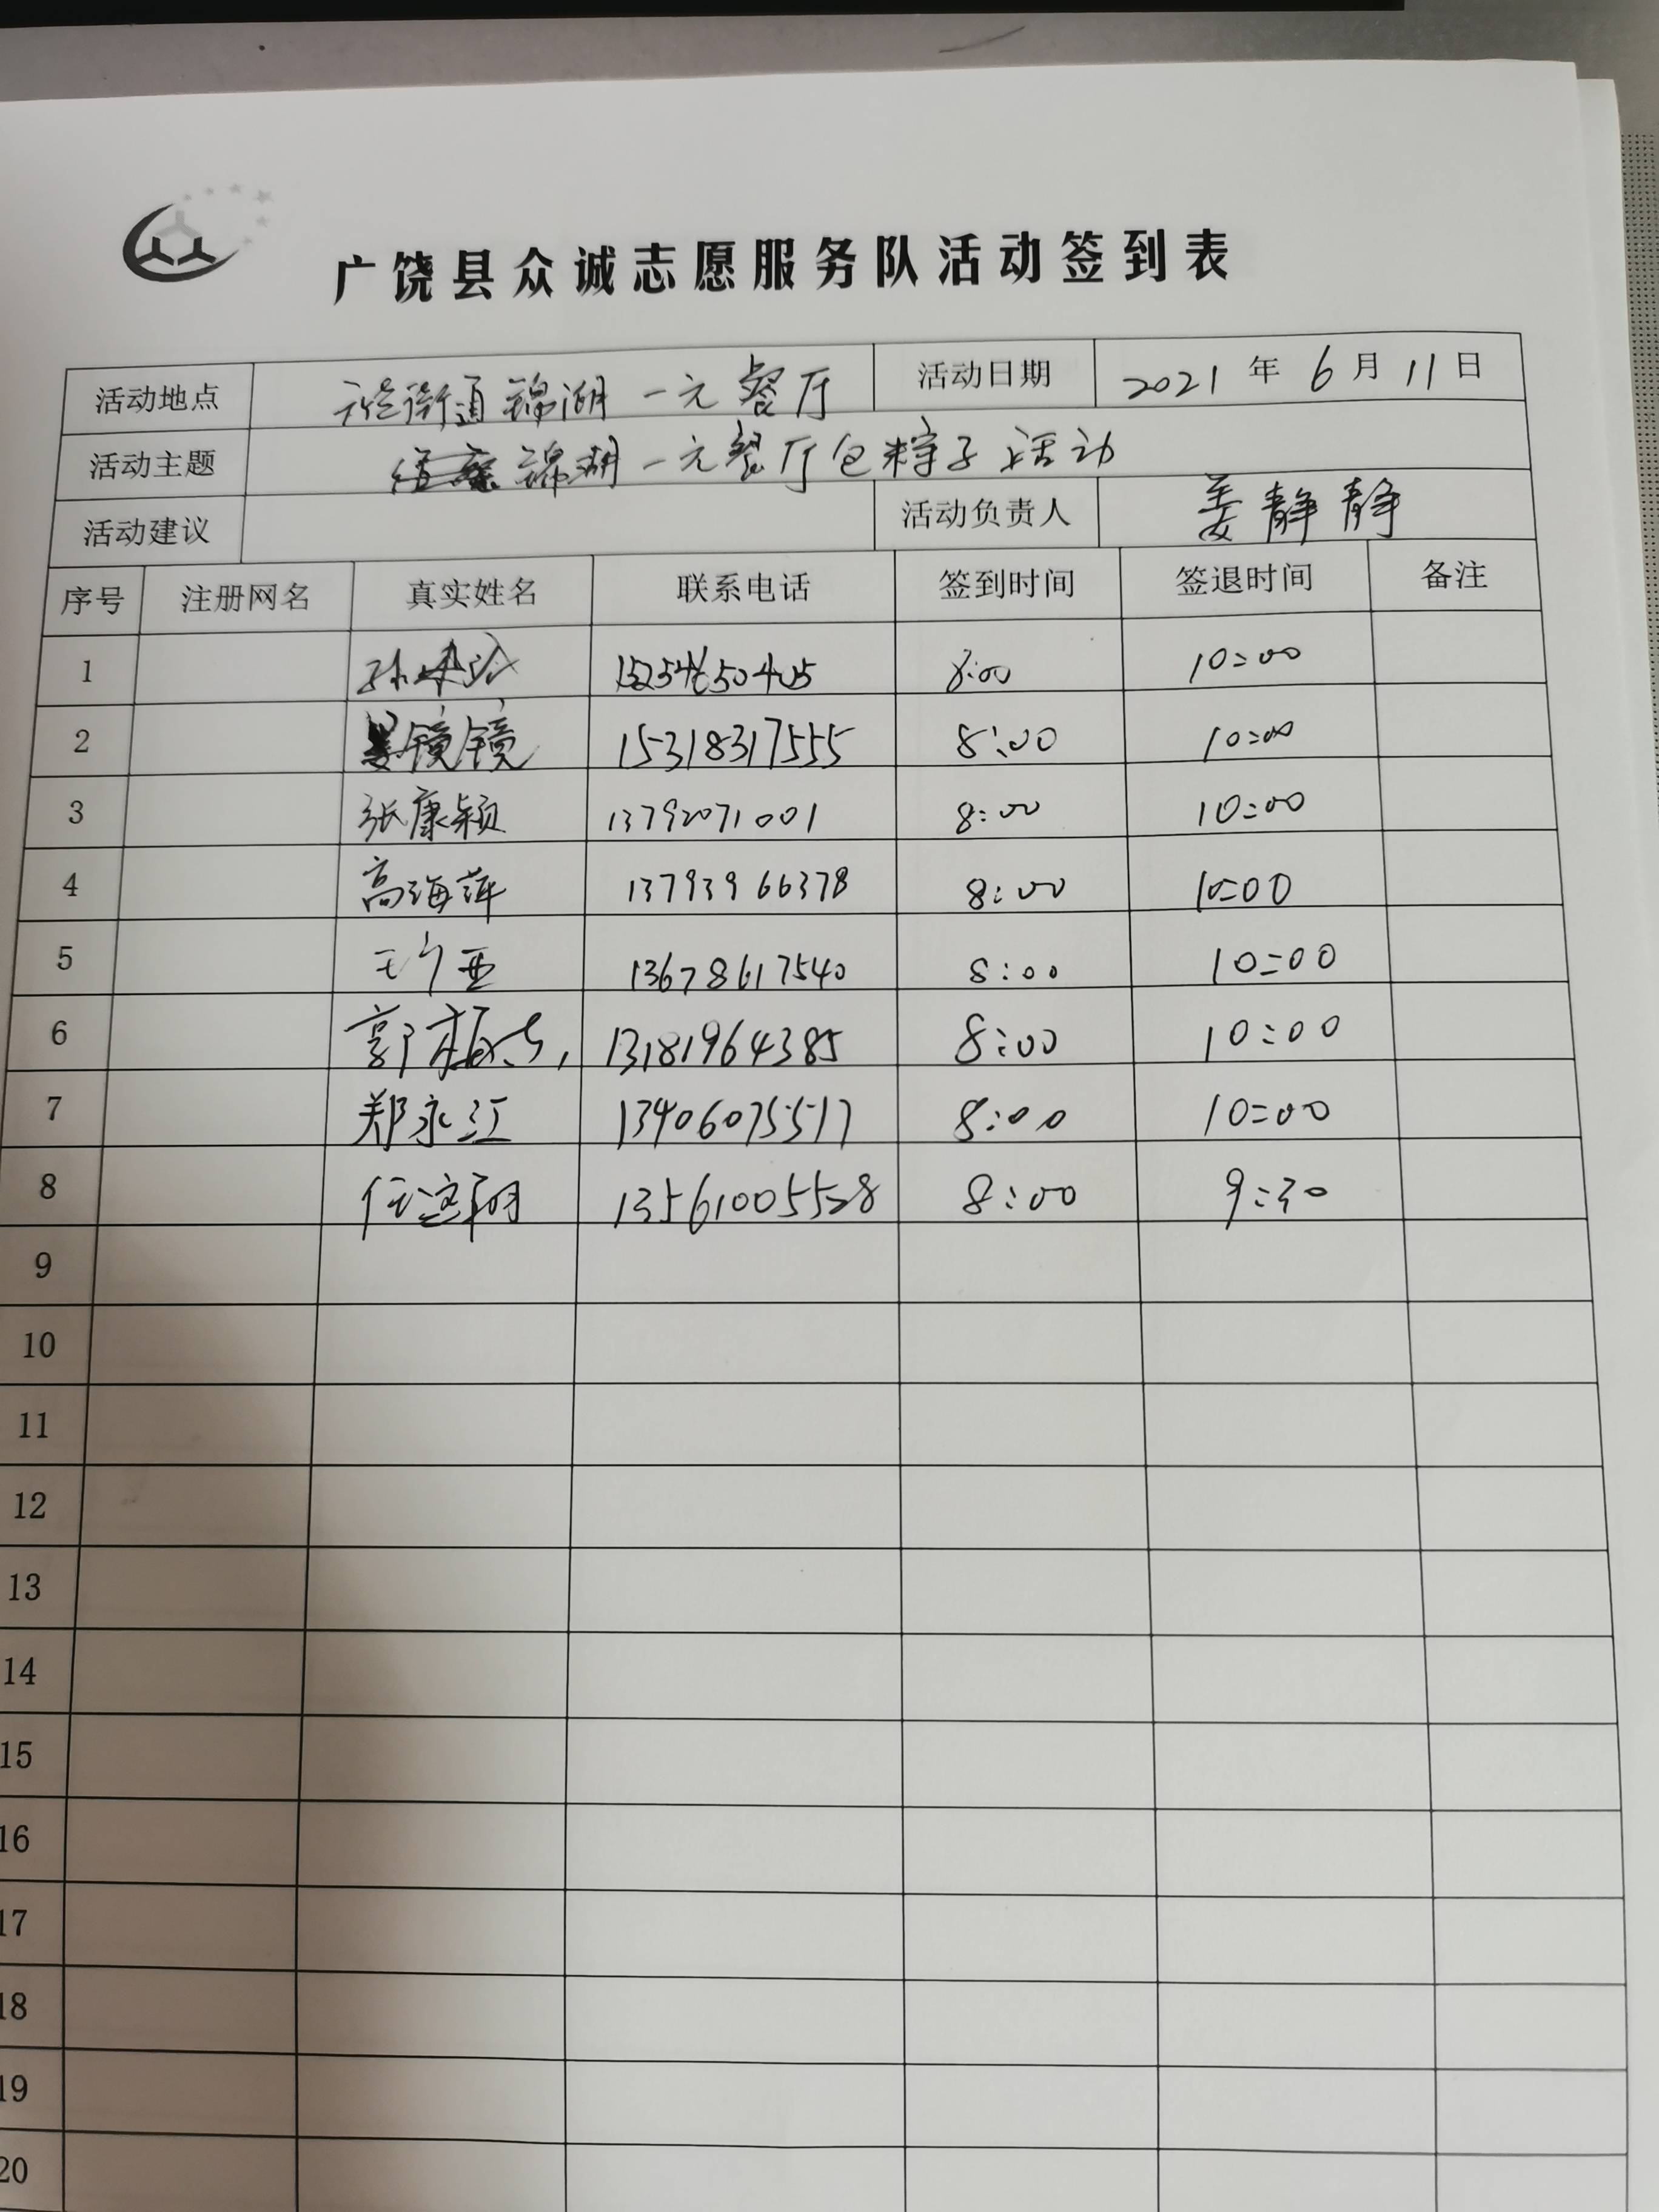 广饶县众诚志愿服务队活动签到表
活动地点 街道锦湖一元餐厅 活动日期 2021年6月11日
活动主题 锦湖一元餐厅包粽子活动
活动建议 活动负责人 姜静静
序号 注册网名 真实姓名 联系电话 签到时间 签退时间 备注
1 孙 8:00 10:00
2 姜镜镜 15318317555 8:00 10:00
3 张康颖 13792071001 8:00 10:00
4 高海萍 13793966378 8:00 10:00
5 王 亚 13678617540 8:00 10:00
6 郭 13181964385 8:00 10:00
7 郑永江 13406075517 8:00 10:00
8 任 13561005528 8:00 9:30
9
10
11
12
13
14
15
16
17
18
19
20